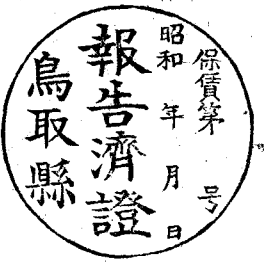 保賃第　号
昭和　年　月　日
報告濟證
鳥取縣